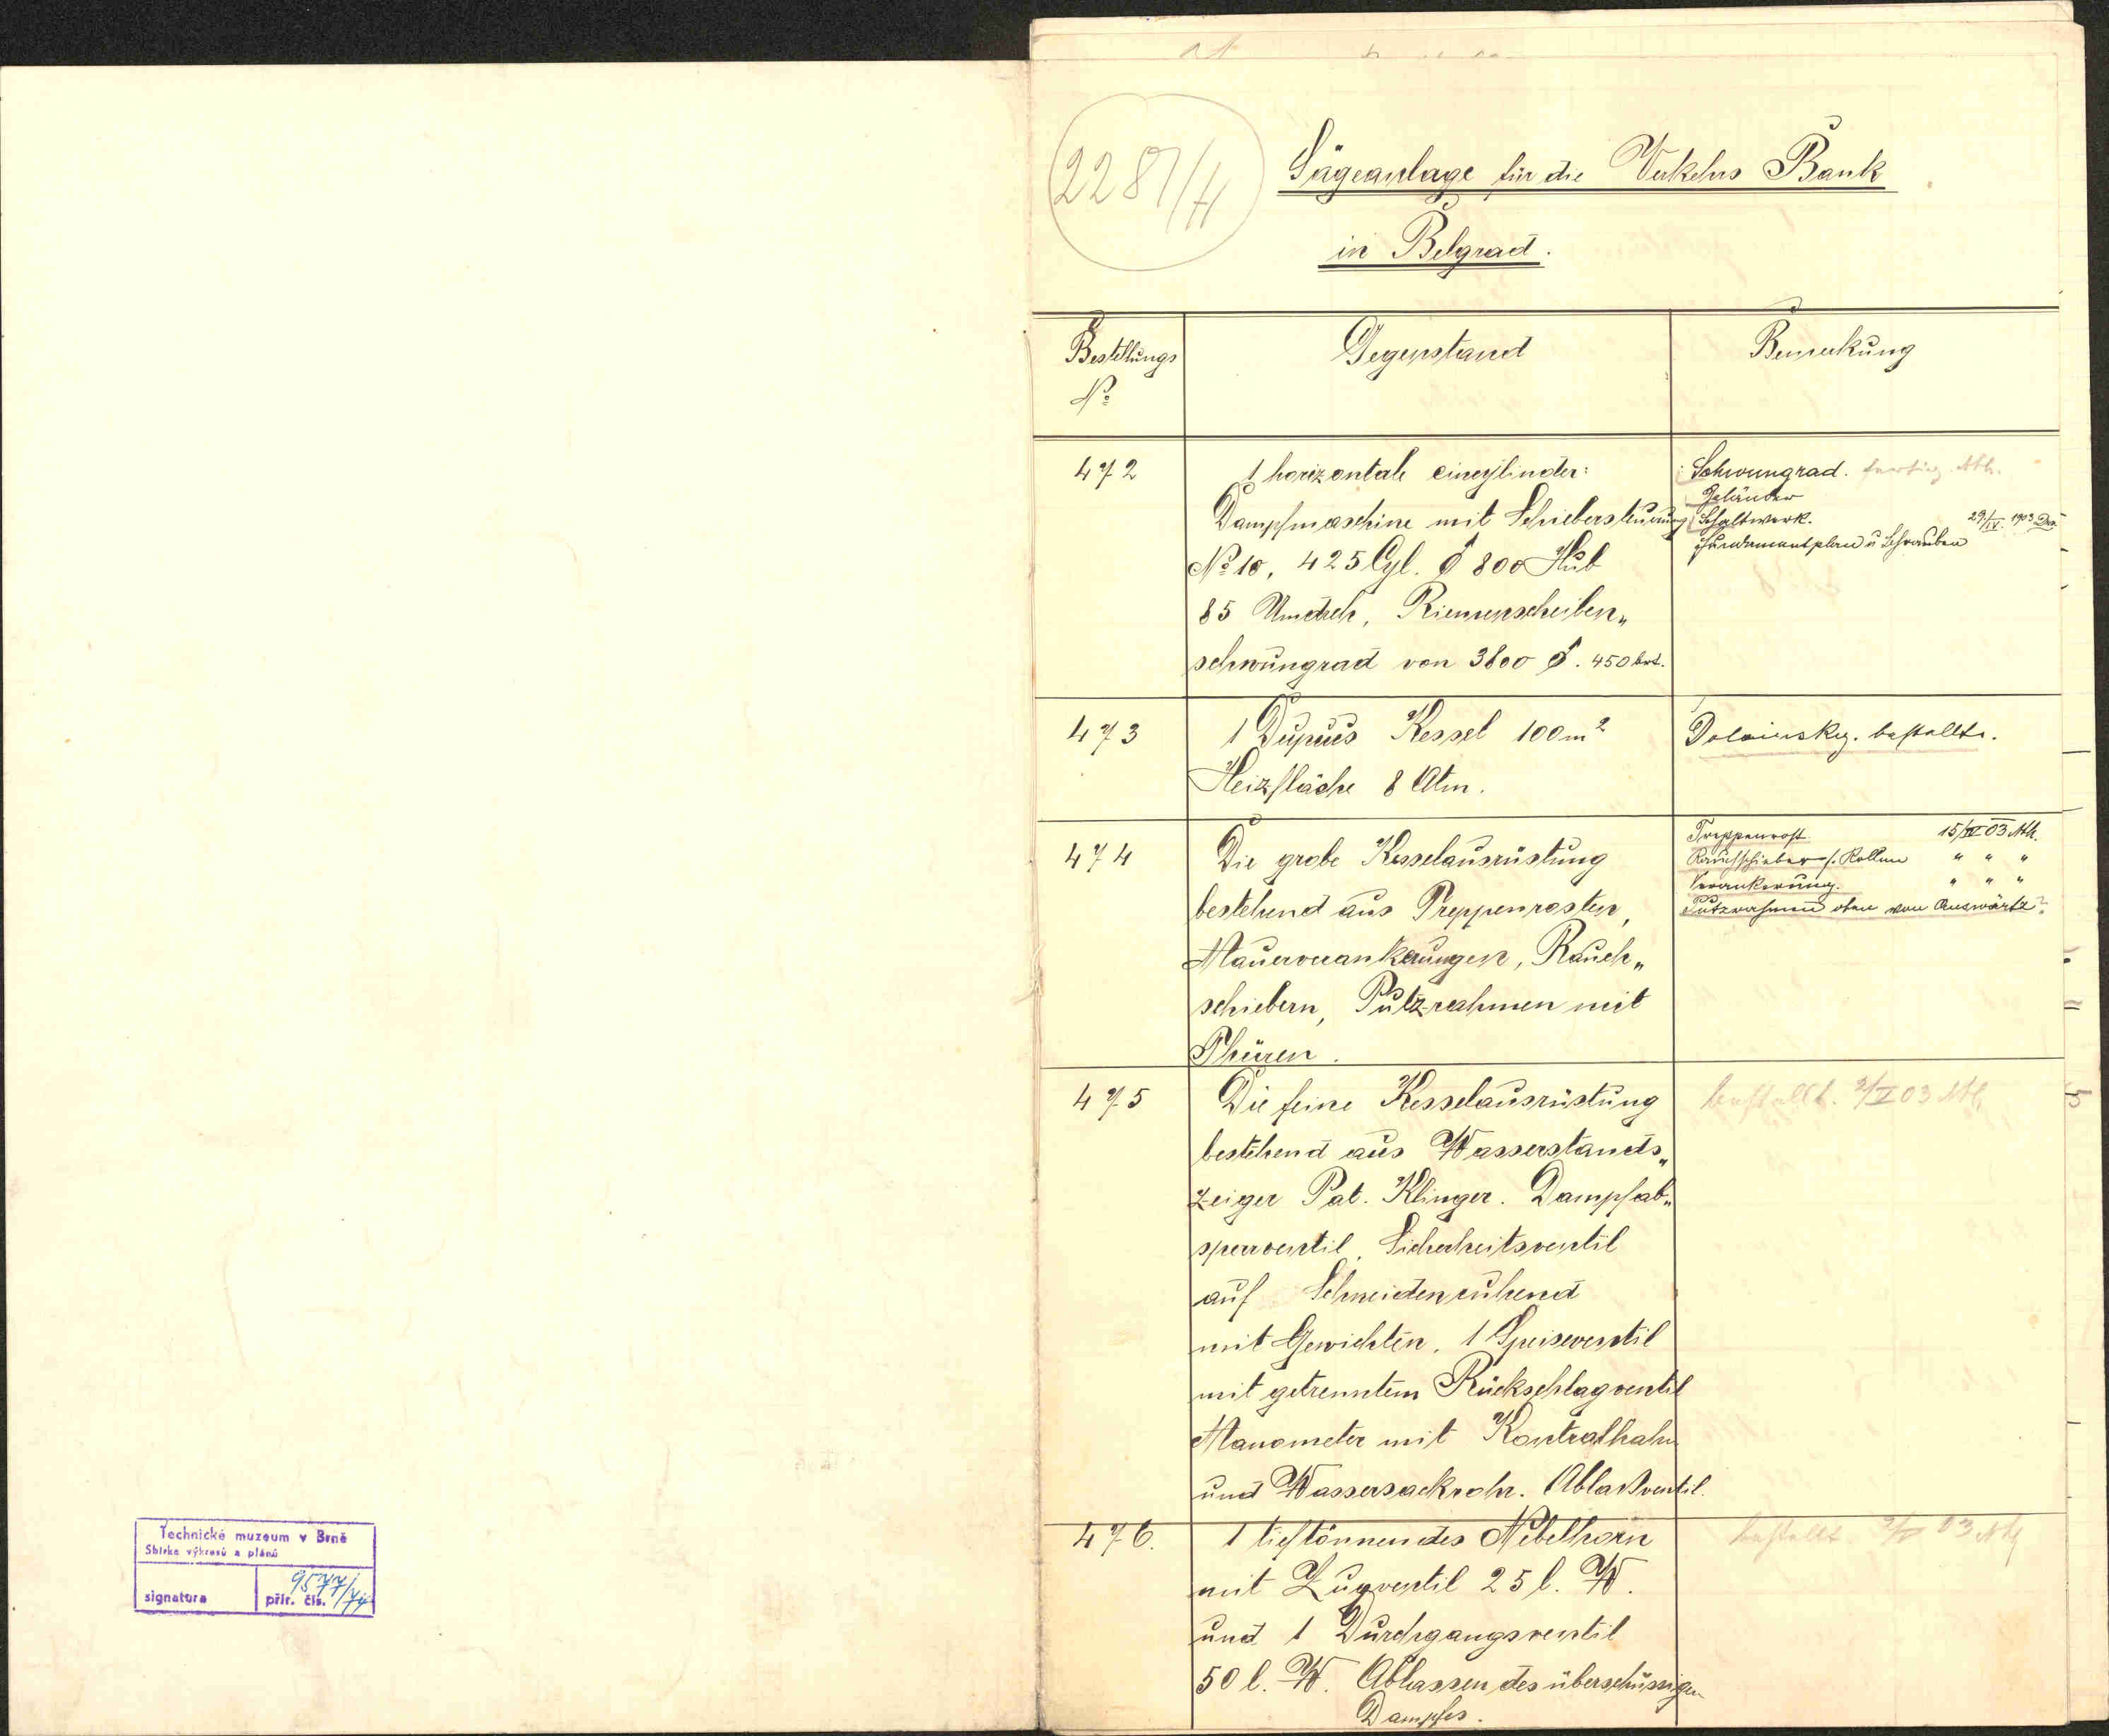 2287/H
Sägeanlage für die Verkehrs Bank
in Belgrad.
Bestellungs
No
Gegenstand
Bemerkung
472
1 horizontale eincylinder:
Dampfmaschine mit Schiebersteuerung
No 10, 425 Cyl. ∅ 800 Hub
85 Umdreh, Riemenscheiben„
schwungrad von 3800 ∅. 450 brt.
Schwungrad. fertig Mh.
Geländer
Schaltwerk.
29/IV. 1903
Fundamentplan u Schrauben
473
1 Dupuis Kessel 100 m2
Heizfläche 8 Atm.
Dolainsky. bestellt.
474
Die grobe Kesselausrüstung
bestehend aus Treppenrosten,
Mauerverankerungen, Rauch„
schiebern, Putzrahmen mit
Thüren.
Treppenrost 15/IV 03 Mh.
Rauchschieber f. Rollen " " "
Verankerung. " " "
Putzrahmen oben von Auswärts?
475
Die feine Kesselausrüstung
bestehend aus Wasserstands„
zeiger Pat. Klinger. Dampfab„
sperrventil, Sicherheitsventil
auf Schneiden ruhend
mit Gewichten, 1 Speiseventil
mit getrenntem Rückschlagventil
Manometer mit Kontrolhahn
und Wassersackrohr. Ablaßventil.
bestellt. 2/V 03 Mh.
476.
1 tieftönnendes Nebelhorn
mit Zugventil 25 l. W.
und 1 Durchgangsventil
50 l. W. Ablassen des überschüssigen
Dampfes.
bestellt 2/V 03 Mh
Technické muzeum v Brně
Sbírka výkresů a plánů
signatura
přír. čís.